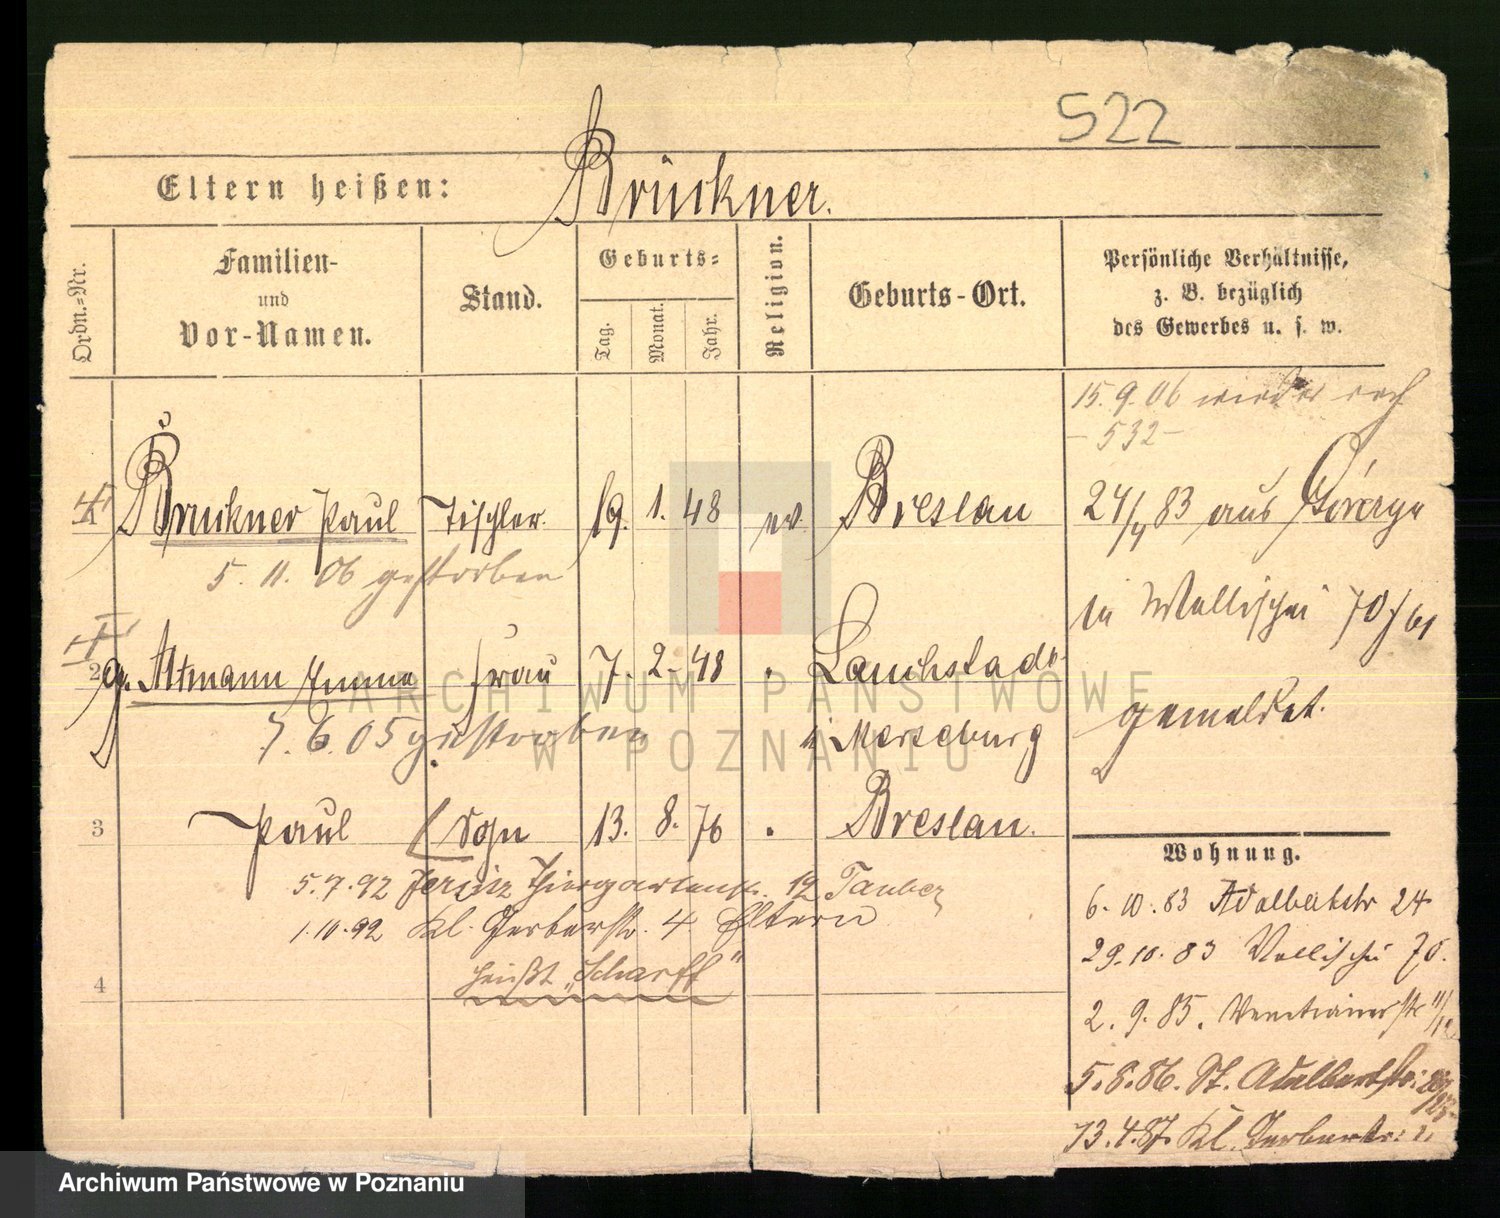 522
Eltern heißen: Brückner.
Ordn.-Nr.
Familien-
und
Vor-Namen.
Stand.
Geburts-
Tag.
Monat.
Jahr.
Religion.
Geburts-Ort.
Persönliche Verhältnisse,
z. B. bezüglich
des Gewerbes u. s. w.
15. 9. 06 wieder
- 532 -
1 Brückner Paul Tischler. 19. 1. 48 ev. Breslau
5. 11. 06 gestorben
24/4 83 aus
in Wallischei 70/61
gemeldet.
2 g. Altmann Emma Frau 7. 2. 48 " Lauchstadt
7. 6. 05 gestorben
Merseburg
3 Paul Sohn 13. 8. 76 " Breslau.
5. 7. 92 Jersitz Thiergartenstr. 12 Tauber
1. 10. 92 Kl. Gerberstr. 4 Eltern
heißt „Scharff"
4
Wohnung.
6. 10. 83 Adalbertstr 24
29. 10. 83 Wallischei 70.
2. 9. 85. Venetianerstr 11/12
5. 8. 86. St. Adalbertstr:
13. 4. 87. Kl. Gerberstr:
ARCHIWUM PAŃSTWOWE
W POZNANIU
Archiwum Państwowe w Poznaniu